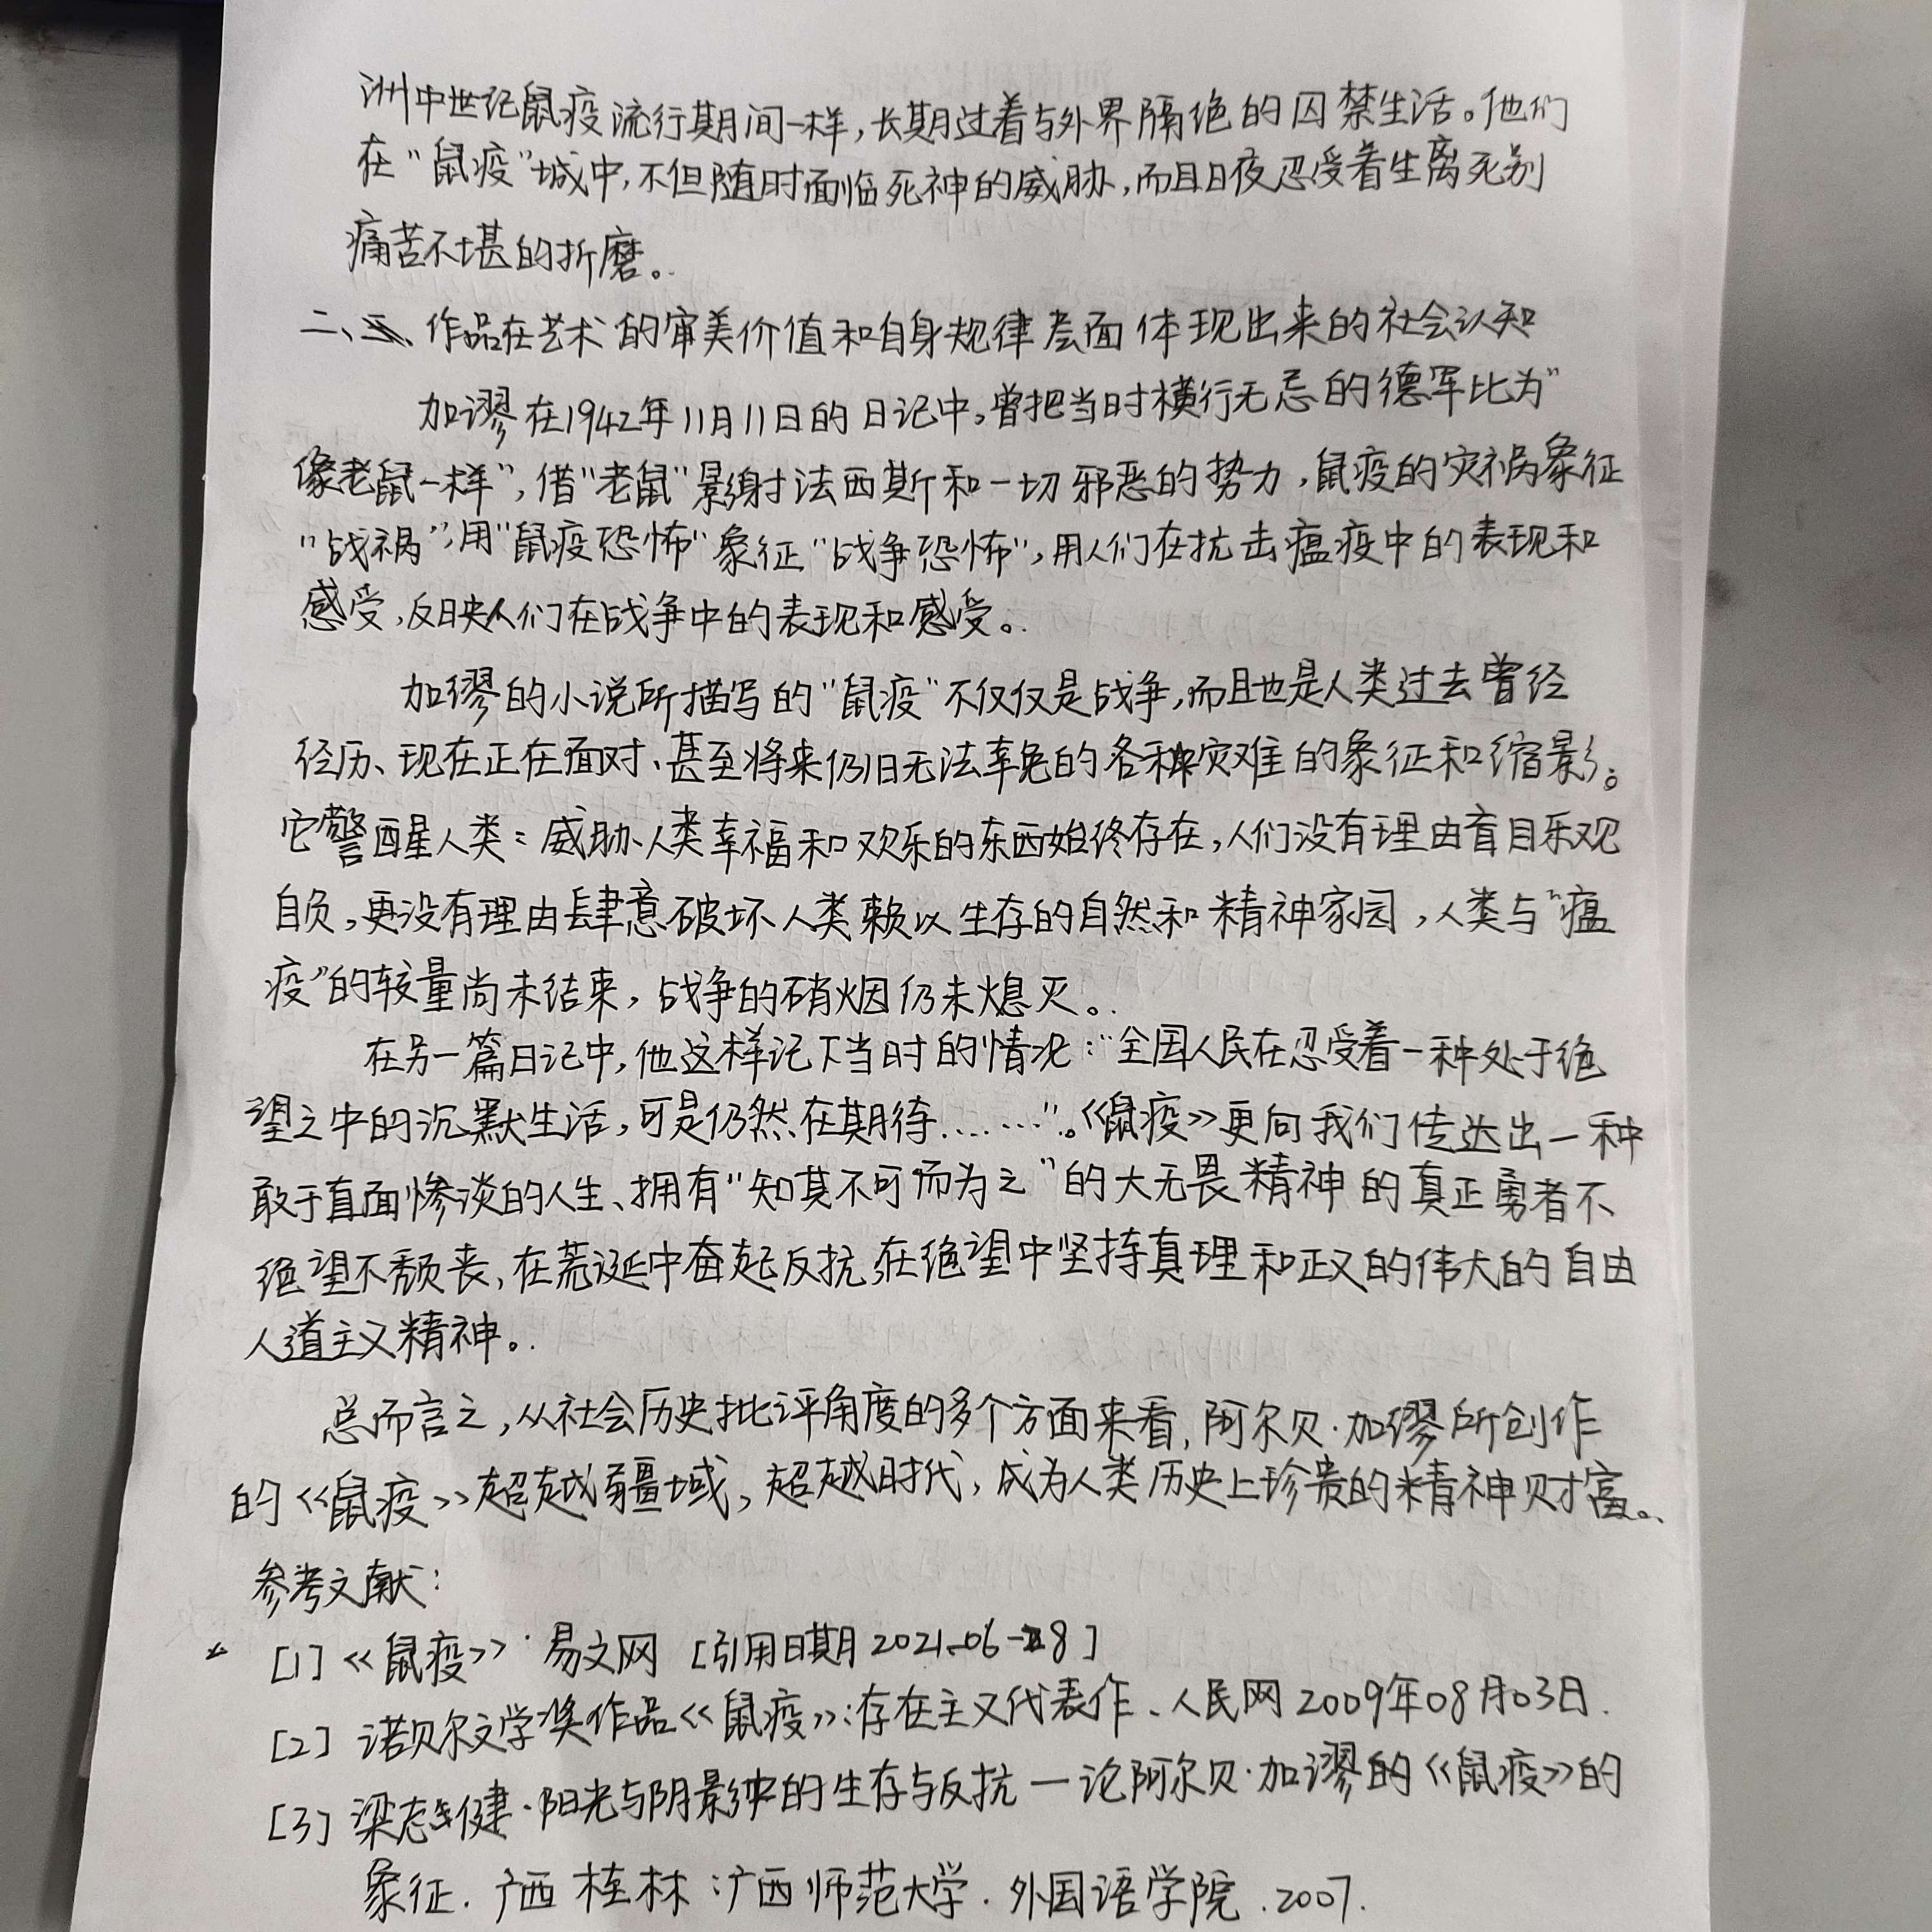 洲中世纪鼠疫流行期间一样，长期过着与外界隔绝的囚禁生活。他们
在“鼠疫”城中，不但随时面临死神的威胁，而且日夜忍受着生离死别
痛苦不堪的折磨。
二、作品在艺术的审美价值和自身规律层面体现出来的社会认知
加谬在1942年11月11日的日记中，曾把当时横行无忌的德军比为”
像老鼠一样”，借“老鼠”影射法西斯和一切邪恶的势力，鼠疫的灾祸象征
“战祸”，用“鼠疫恐怖”象征“战争恐怖”，用人们在抗击瘟疫中的表现和
感受，反映人们在战争中的表现和感受。
加缪的小说所描写的“鼠疫”不仅仅是战争，而且也是人类过去曾经
经历、现在正在面对、甚至将来仍旧无法幸免的各种灾难的象征和缩影。
它警醒人类：威胁人类幸福和欢乐的东西始终存在，人们没有理由盲目乐观
自负，更没有理由肆意破坏人类赖以生存的自然和精神家园，人类与“瘟
疫”的较量尚未结束，战争的硝烟仍未熄灭。
在另一篇日记中，他这样记下当时的情况：“全国人民在忍受着一种处于绝
望之中的沉默生活，可是仍然在期待……”。《鼠疫》更向我们传达出一种
敢于直面惨淡的人生、拥有“知其不可而为之”的大无畏精神的真正勇者不
绝望不颓丧，在荒诞中奋起反抗，在绝望中坚持真理和正义的伟大的自由
人道主义精神。
总而言之，从社会历史批评角度的多个方面来看，阿尔贝·加缪所创作
的《鼠疫》超越疆域，超越时代，成为人类历史上珍贵的精神财富。
参考文献：
[1]《鼠疫》·易文网 [引用日期2021-06-28]
[2] 诺贝尔文学奖作品《鼠疫》：存在主义代表作、人民网2009年08月03日.
[3] 梁志健·阳光与阴影的生存与反抗—论阿尔贝·加谬的《鼠疫》的
象征.广西桂林：广西师范大学.外国语学院.2007.